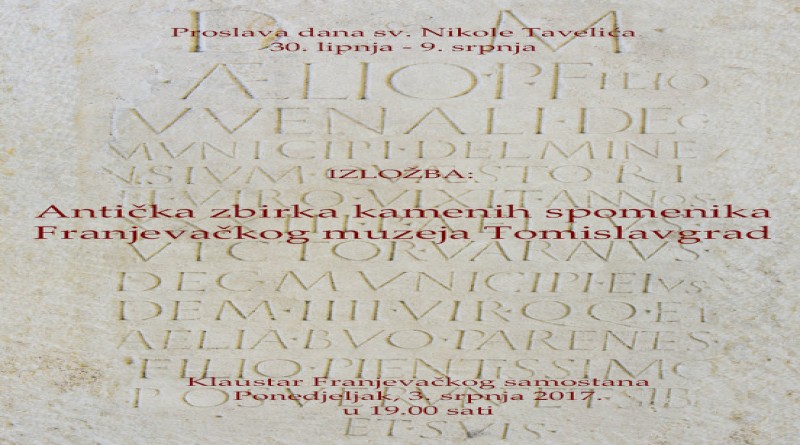 D M
Proslava dana sv. Nikole Tavelića
30. lipnja - 9. srpnja
ÆLIO·P·FILIO
VVENALI·DEC
MVNICIPI DELMINE
IZLOŽBA:
NSIVM QVAESTORI
II VIRO VIXIT ANNOS
Antička zbirka kamenih spomenika
Franjevačkog muzeja Tomislavgrad
VICTOR VARANVS
DEC·MVNICIPI·EIVS
DEM·IIII·VIR·Q·Q·ET
AELIA·BVO·PARENTES
FILIO·PIENTISSIMO
Klaustar Franjevačkog samostana
Ponedjeljak, 3. srpnja 2017.
POSVERVNT ET SIB
u 19.00 sati
ET SVIS